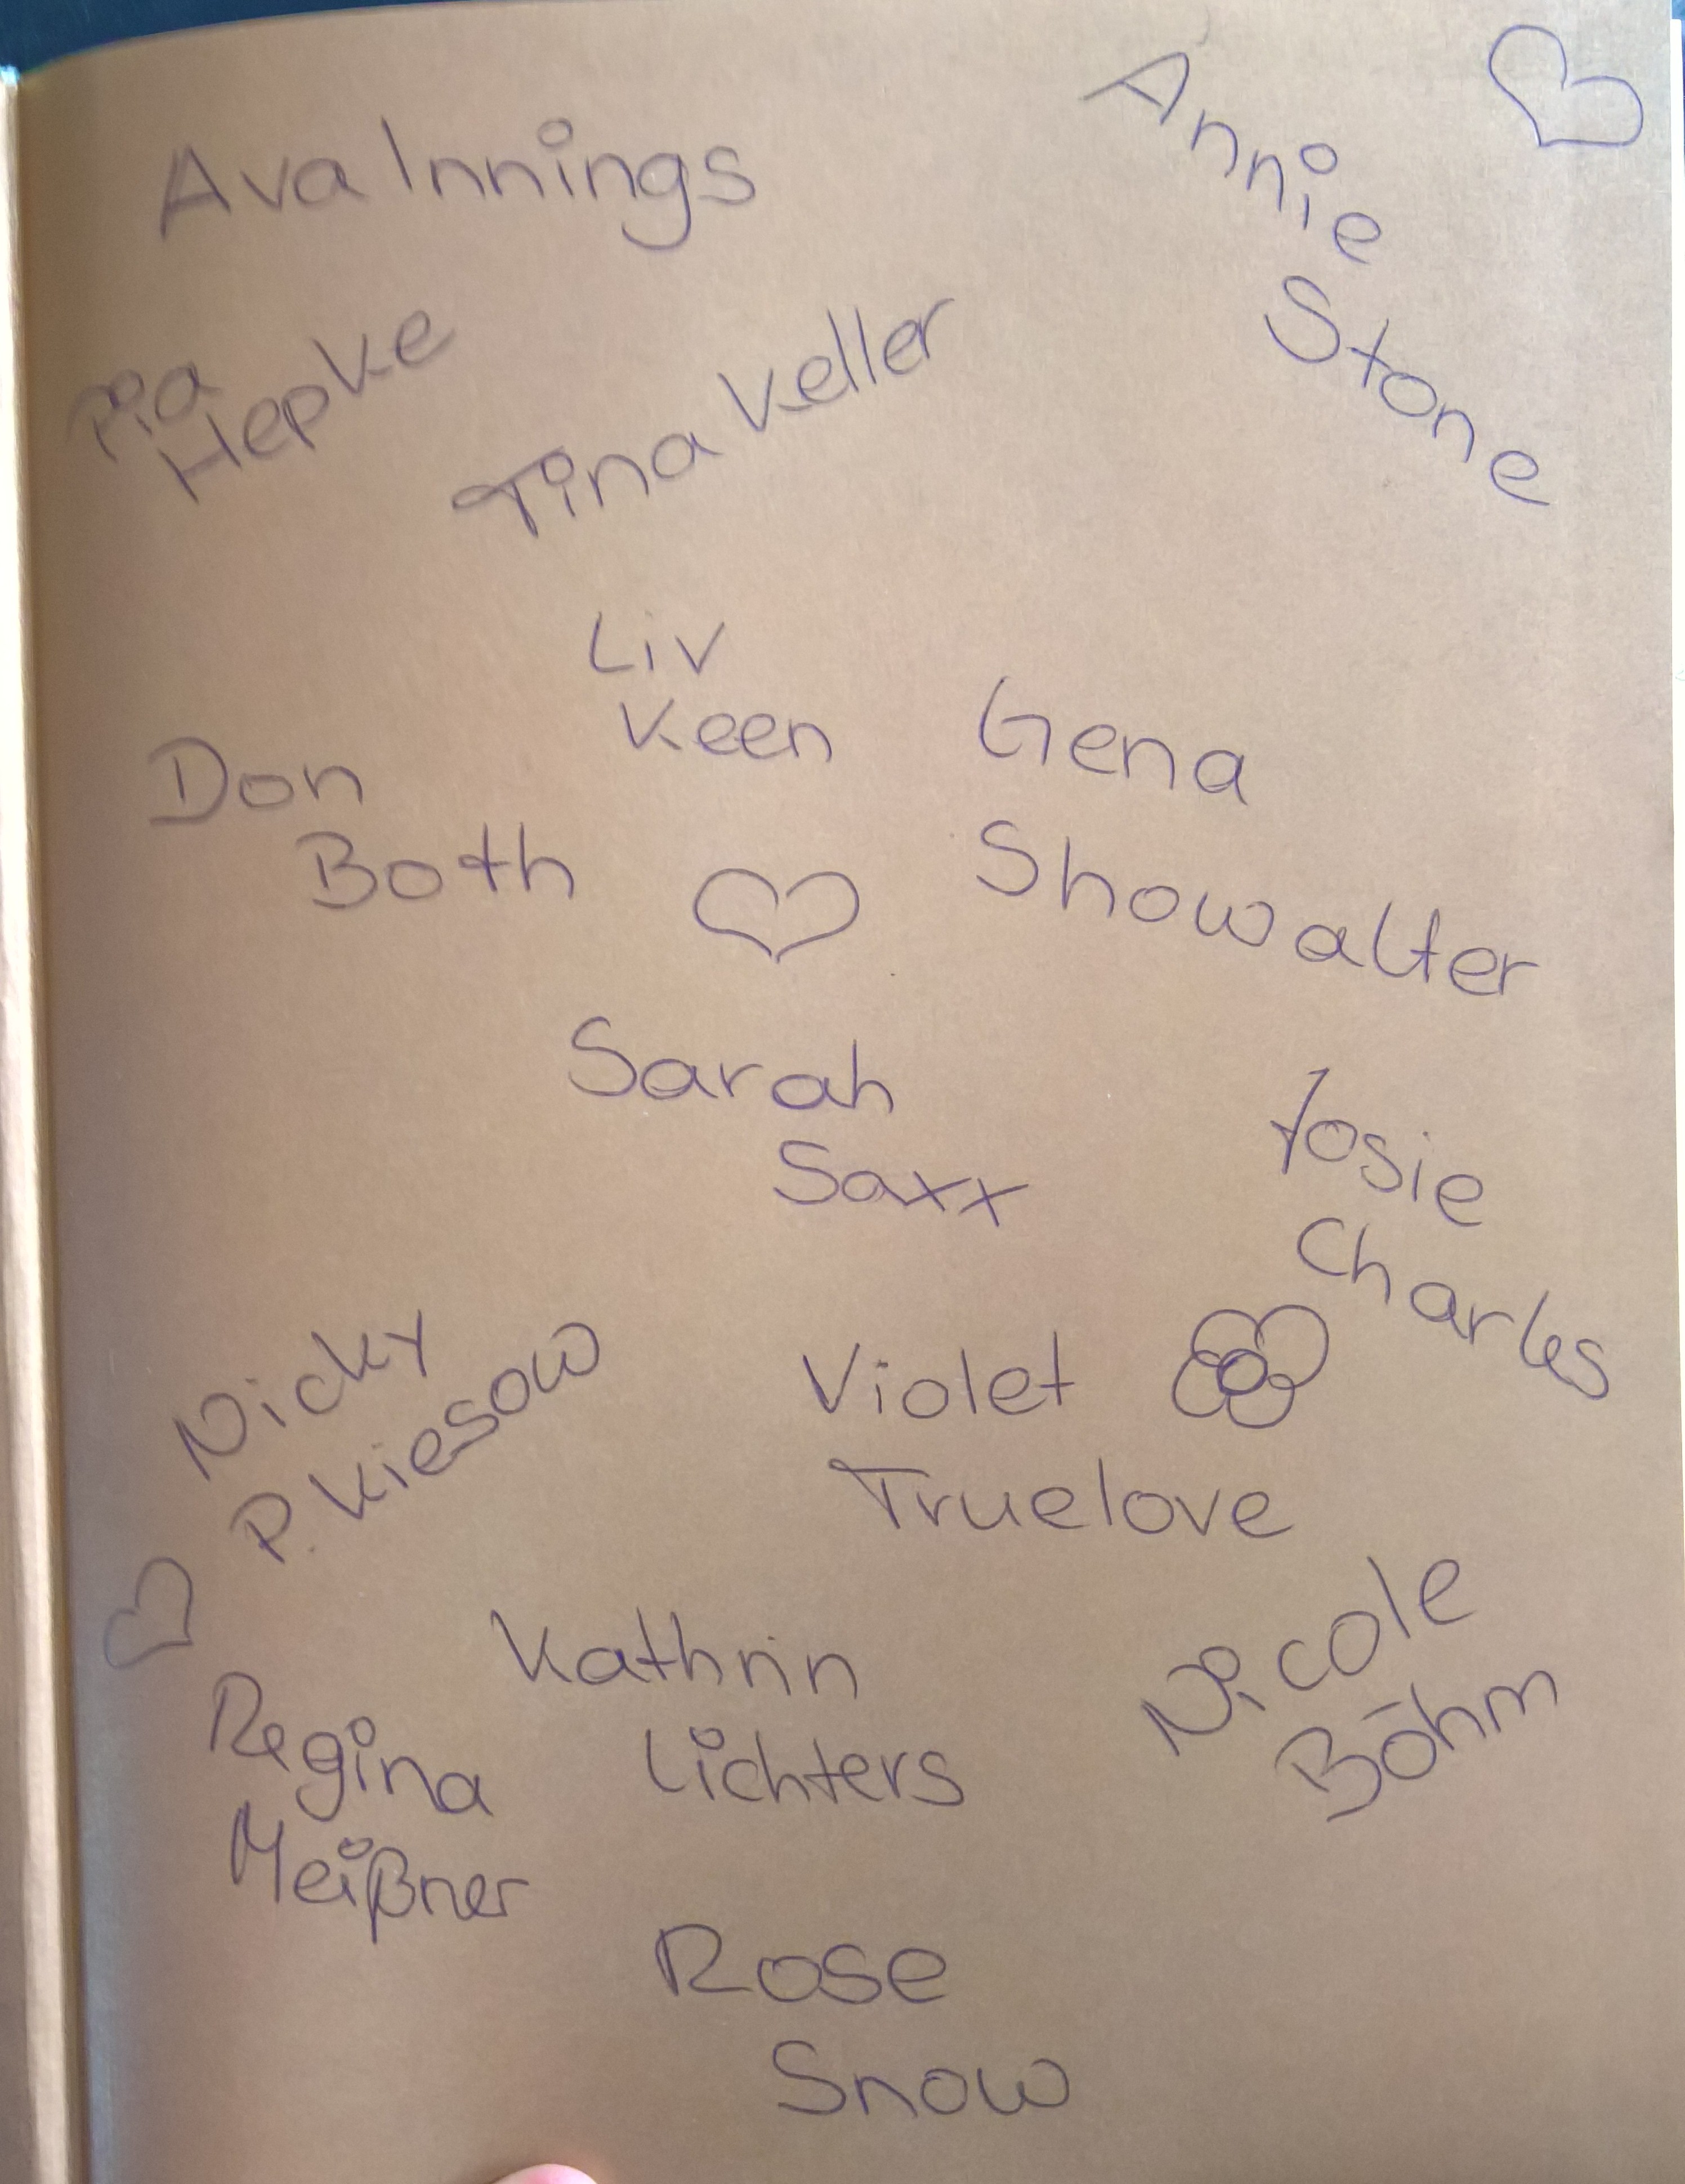 Ava Innings
Annie
Stone
Pia
Hepke
Tina Keller
Liv
Keen
Gena
Showalter
Don
Both
Sarah
Saxx
Josie
Charles
Nicky
P. Kiesow
Violet
Truelove
Kathrin
Lichters
Nicole
Böhm
Regina
Meißner
Rose
Snow